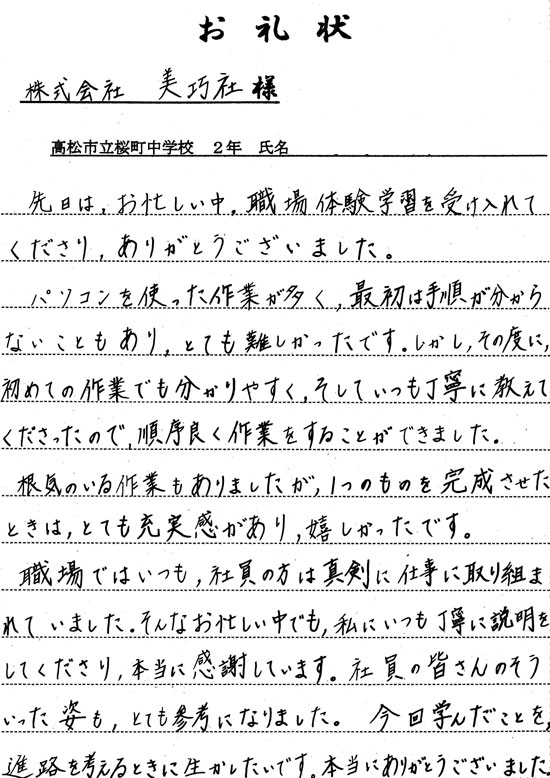 お礼状
株式会社 美巧社 様
高松市立桜町中学校 2年 氏名
先日は、お忙しい中、職場体験学習を受け入れて
くださり、ありがとうございました。
パソコンを使った作業が多く、最初は手順が分から
ないこともあり、とても難しかったです。しかし、その度に、
初めての作業でも分かりやすく、そしていつも丁寧に教えて
くださったので、順序良く作業をすることができました。
根気のいる作業もありましたが、1つのものを完成させた
ときは、とても充実感があり、嬉しかったです。
職場ではいつも、社員の方は真剣に仕事に取り組ま
れていました。そんなお忙しい中でも、私にいつも丁寧に説明を
してくださり、本当に感謝しています。社員の皆さんのそう
いった姿も、とても参考になりました。 今回学んだことを、
進路を考えるときに生かしたいです。本当にありがとうございました